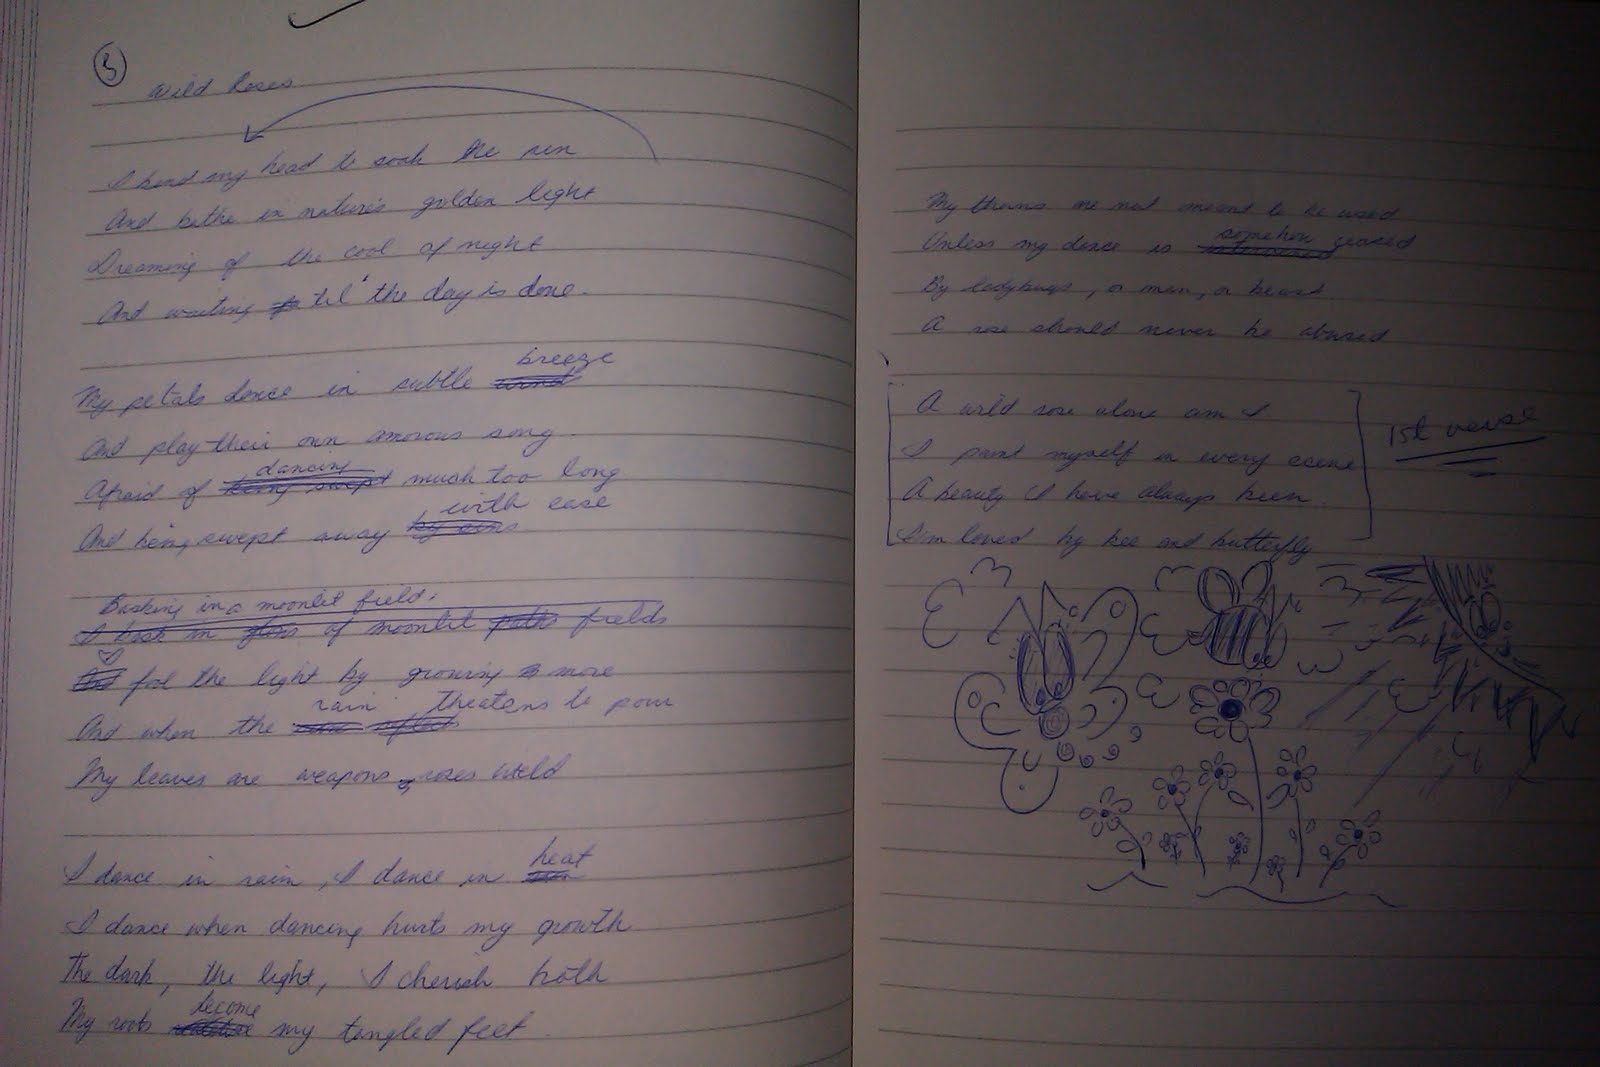 3
Wild Roses
I bend my head to soak the sun
And bathe in nature's golden light
Dreaming of the cool of night
And waiting 'til the day is done.
breeze
My petals dance in subtle wind
And play their own amorous song.
dancing
Afraid of being swept much too long
with ease
And being swept away by
Basking in a moonlit field,
I bask in of moonlit fields
And fool the light by growing more
rain threatens to pour
And when the
My leaves are weapons, roses wield
heat
I dance in rain, I dance in
I dance when dancing hurts my growth
The dark, the light, I cherish both
become
My roots my tangled feet
My thorns are not meant to be used
somehow
Unless my dance is ceased
By ladybugs, or man, or beast
A rose should never be abused
A wild rose alone am I
I paint myself in every scene
1st verse
A beauty I have always been
I'm loved by bee and butterfly